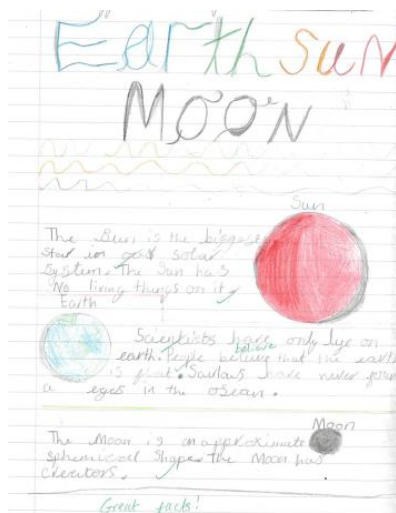 Earth Sun
MOON
Sun
The Sun is the biggest
star in our solar
system. The Sun has
No living things on it.
Earth
Scientists have only lye on
believe
earth. People believing that the earth
is flat. Saulaus have never foun
a eges in the osean.
Moon
The Moon is an approximate
sphemical shape the Moon has
creators.
Great facts!